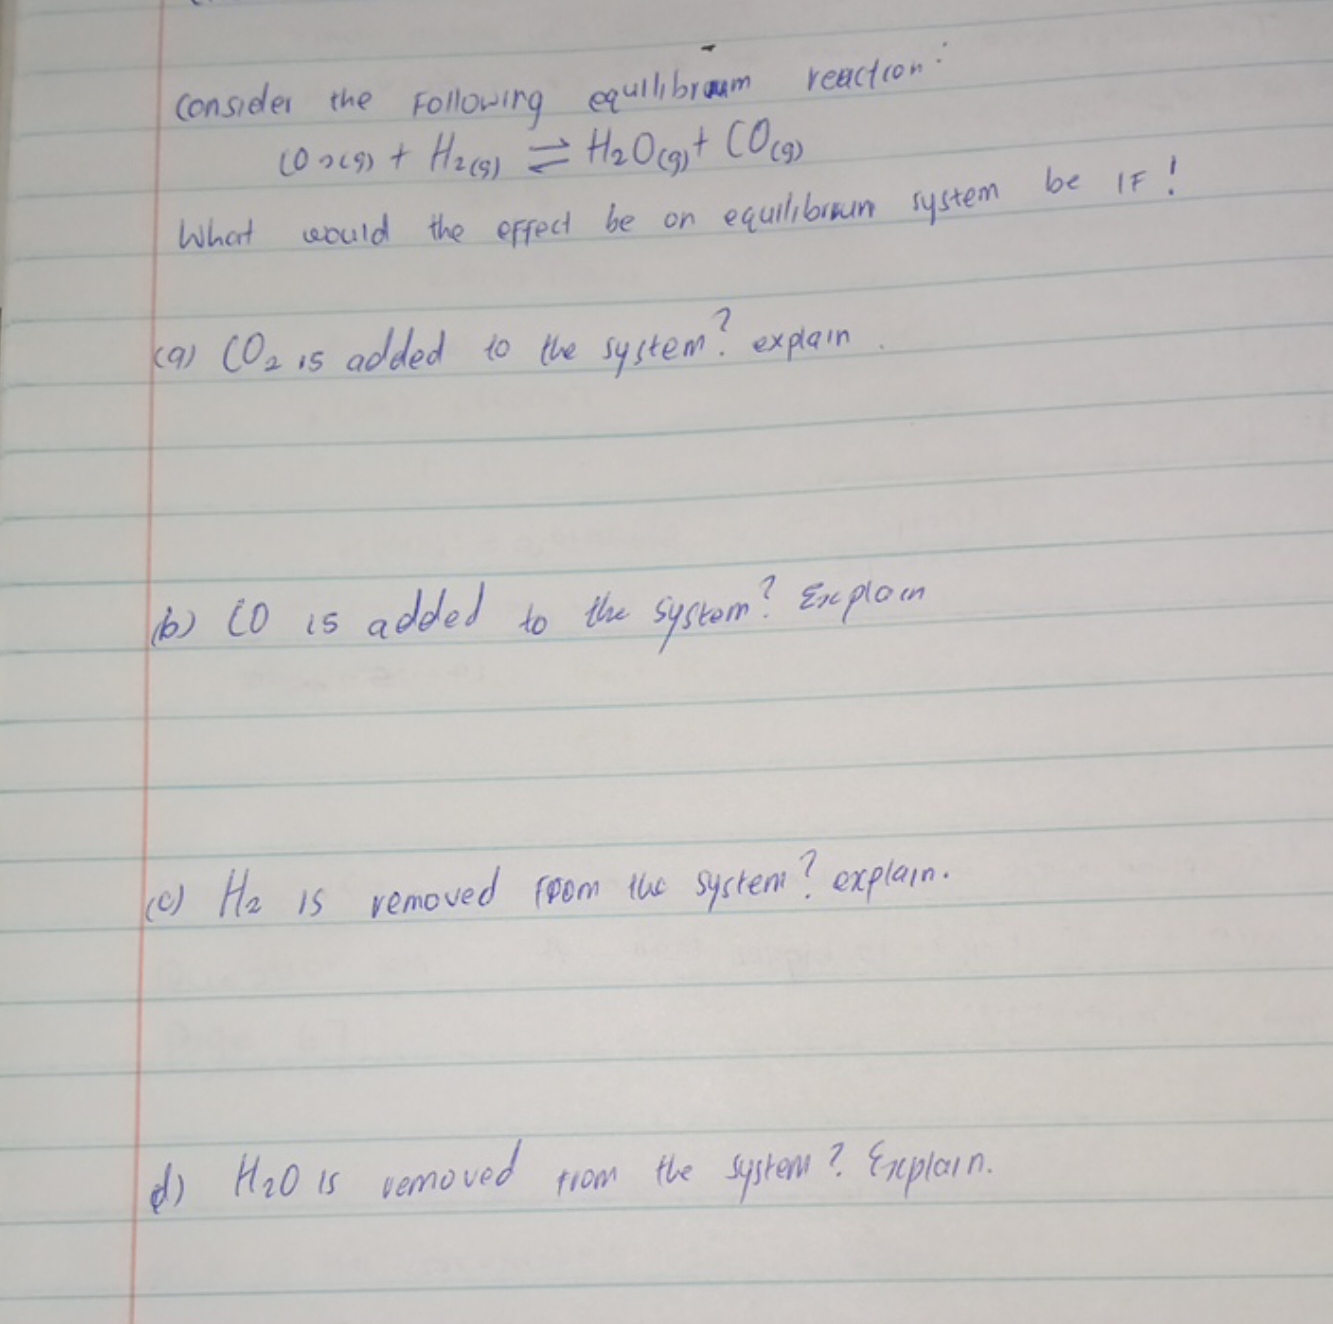 Consider the Following equilibrium reaction:
CO2(g) + H2(g) ⇌ H2O(g) + CO(g)
What would the effect be on equilibrium system be IF!
(a) CO2 is added to the system? explain.
(b) CO is added to the system? Explain
(c) H2 is removed from the system? explain.
d) H2O is removed from the system? Explain.